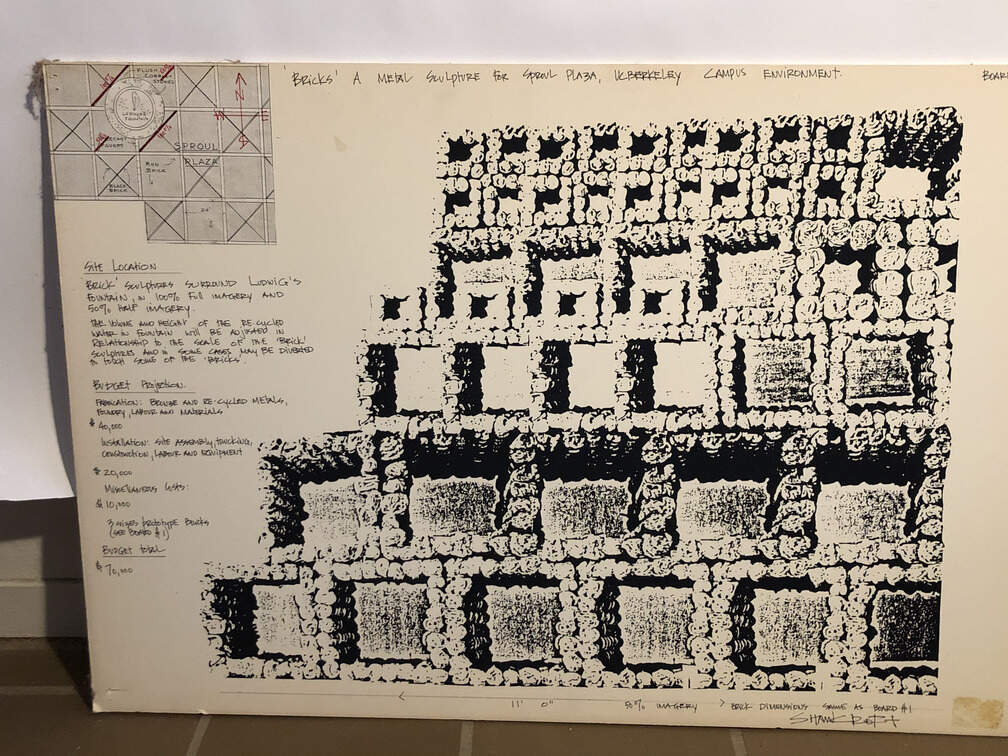 'BRICKS' A METAL SCULPTURE FOR SPROUL PLAZA, UCBERKELEY CAMPUS ENVIRONMENT.
BOAR
FLUSH
STONES
LUDWIG'S
FOUNTAIN
N
E
S
SPROUL
PLAZA
RED
BRICK
BLACK
BRICK
SITE LOCATION
BRICK' SCULPTURES SURROUND LUDWIG'S
FOUNTAIN, IN 100% FULL IMAGERY AND
50% HALF IMAGERY.
THE VOLUME AND HEIGHT OF THE RE-CYCLED
WATER IN FOUNTAIN WILL BE ADJUSTED IN
RELATIONSHIP TO THE SCALE OF THE 'BRICK'
SCULPTURES AND IN SOME CASES MAY BE DIVERTED
TO TOUCH SOME OF THE 'BRICKS'.
BUDGET PROJECTION.
FABRICATION: BRONZE AND RE-CYCLED METALS,
FOUNDRY, LABOUR AND MATERIALS
$ 40,000
INSTALLATION: SITE ASSEMBLY, TRUCKING,
CONSTRUCTION, LABOUR AND EQUIPMENT
$ 20,000
MISCELLANEOUS COSTS:
$ 10,000
3 SIZES PROTOTYPE BRICKS
(SEE BOARD #1)
BUDGET TOTAL
$ 70,000
11' 0"
50% IMAGERY
BRICK DIMENSIONS SAME AS BOARD #1